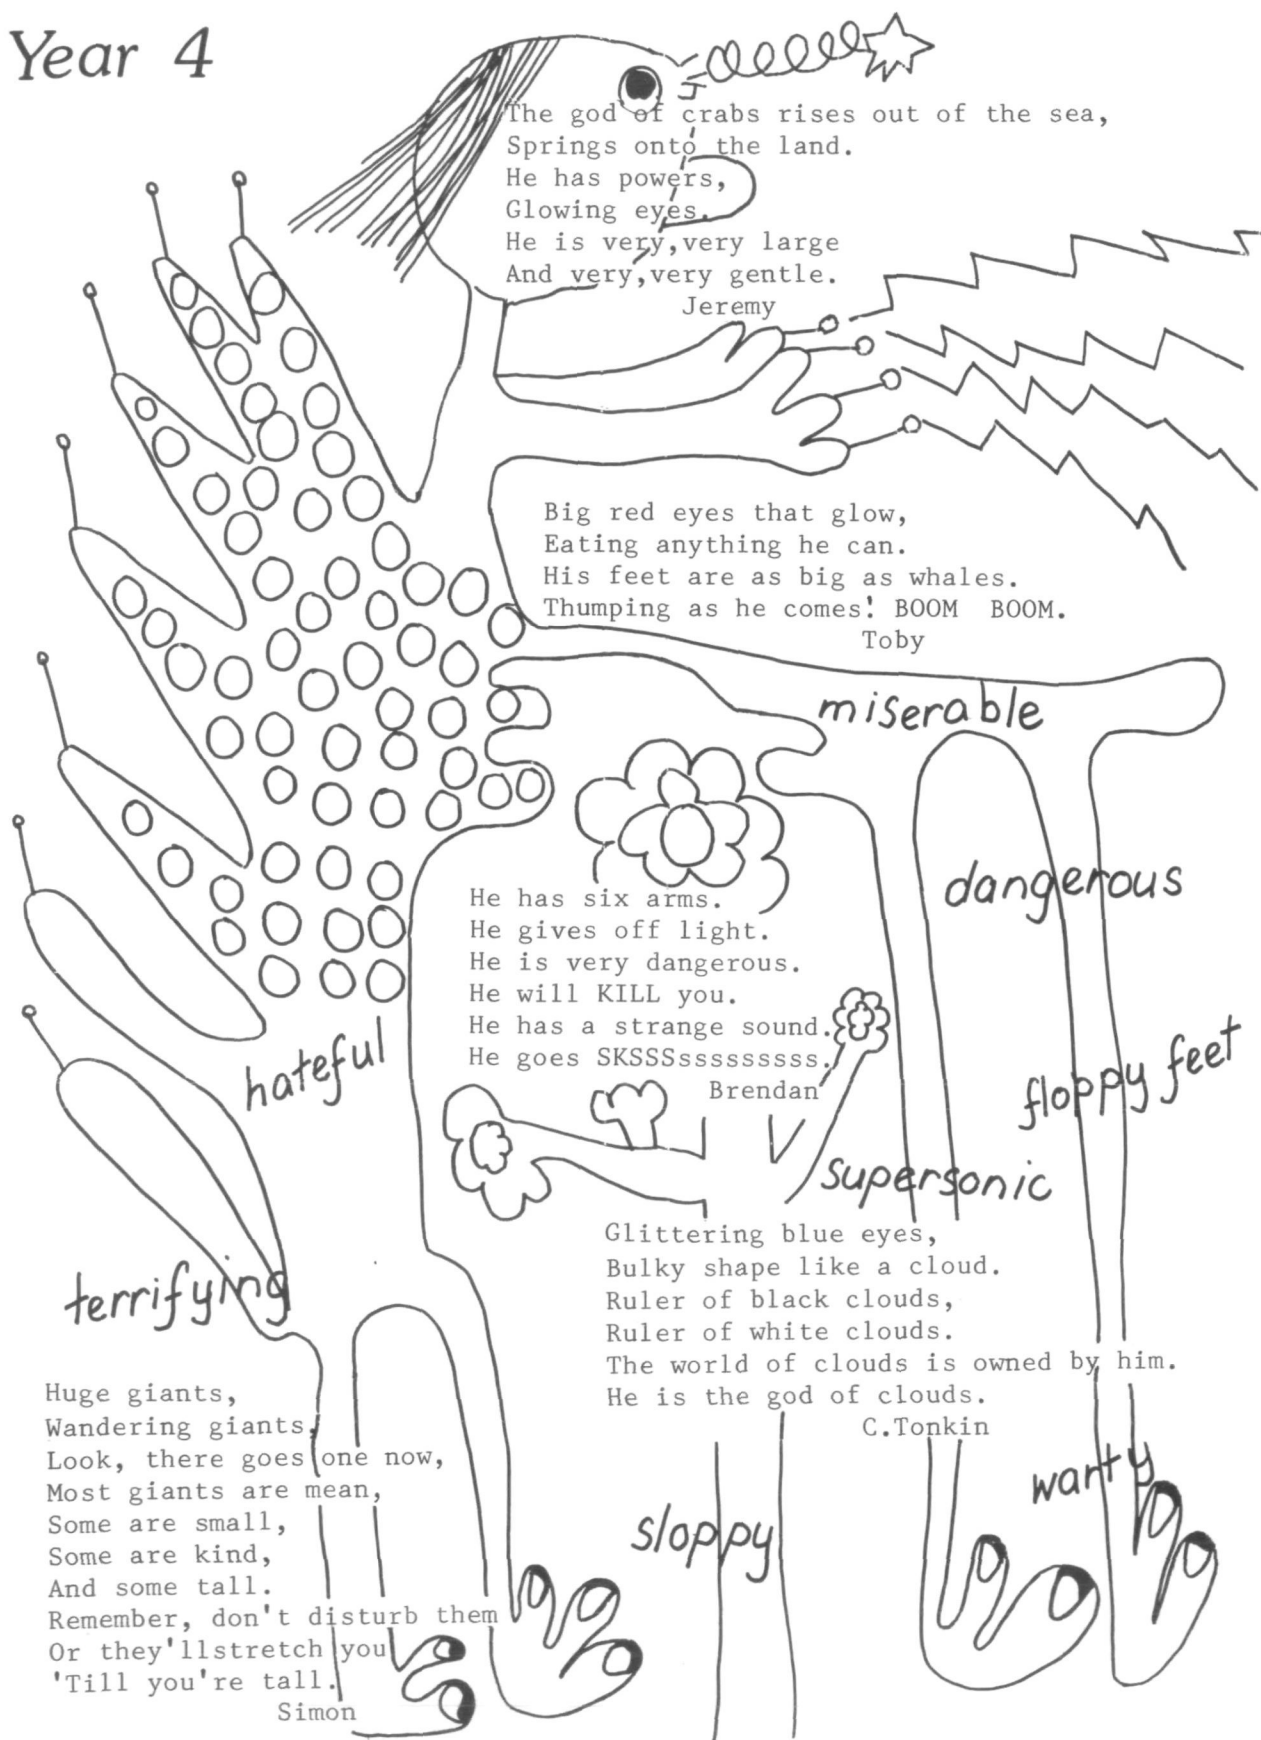 Year 4
The god of crabs rises out of the sea,
Springs onto the land.
He has powers,
Glowing eyes.
He is very,very large
And very,very gentle.
Jeremy
Big red eyes that glow,
Eating anything he can.
His feet are as big as whales.
Thumping as he comes! BOOM BOOM.
Toby
miserable
dangerous
He has six arms.
He gives off light.
He is very dangerous.
He will KILL you.
He has a strange sound.
He goes SKSSSssssssssss.
Brendan
hateful
floppy feet
supersonic
terrifying
Glittering blue eyes,
Bulky shape like a cloud.
Ruler of black clouds,
Ruler of white clouds.
The world of clouds is owned by him.
He is the god of clouds.
C.Tonkin
Huge giants,
Wandering giants,
Look, there goes one now,
Most giants are mean,
Some are small,
Some are kind,
And some tall.
Remember, don't disturb them
Or they'llstretch you
'Till you're tall.
Simon
warty
sloppy